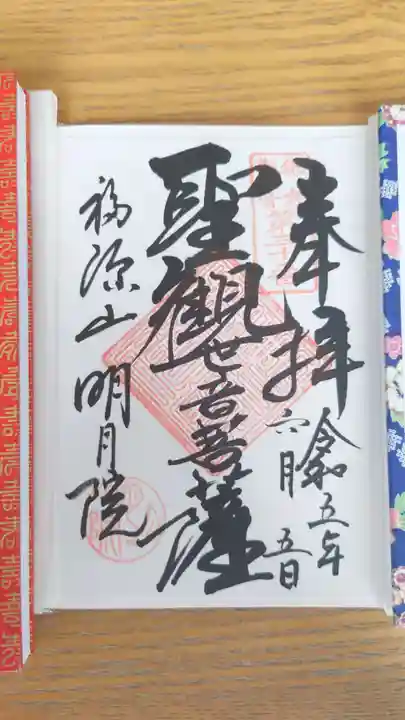 奉拝
令和五年
六月五日
聖観世音菩薩
福源山明月院